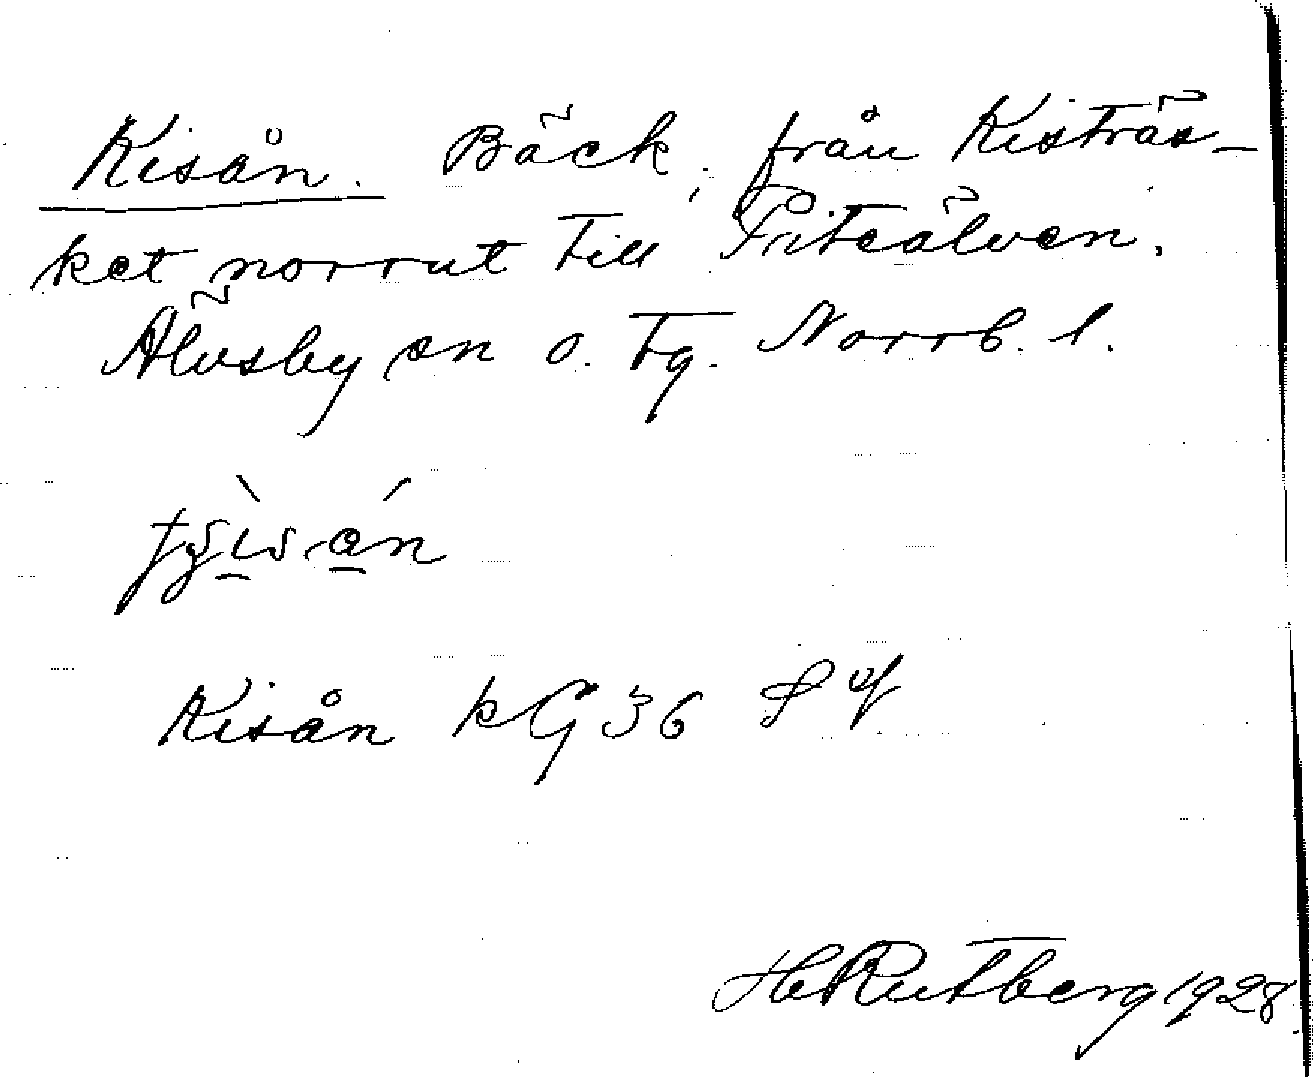 Kisån. Bäck, från Kisträs-
ket norrut till Piteälven.
Älvsby sn o. tg. Norrb. l.
Kisån kG36
H Rutberg 1928